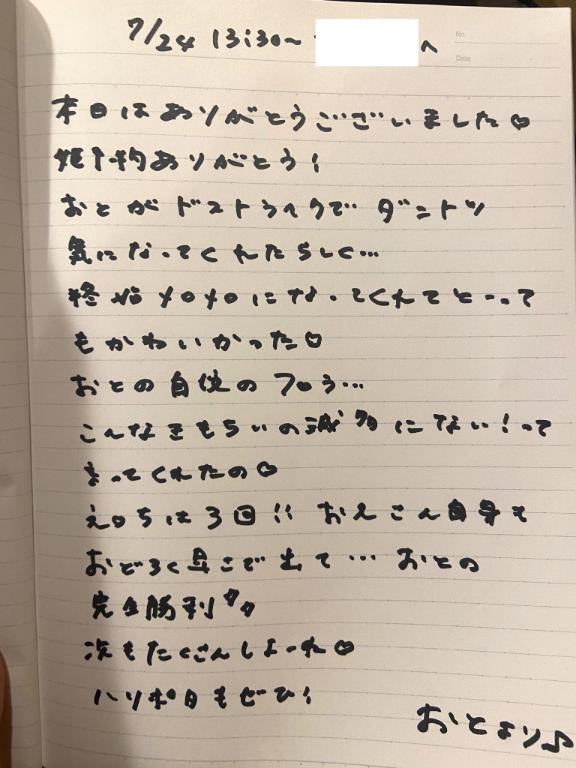 7/24 13:30〜 へ
No.
Date
本日はありがとうございました♡
姫予約ありがとう!
おとがドストライクで ダントツ
気になってくれたらしく…
終始メロメロになってくれてとーって
もかわいかった♡
おとの自慢のフロう…
こんなきもちいの滅多にない!って
言ってくれたの♡
えっちは3回!! おにさん自身も
おどろく早さで出て… おとの
完全勝利
次もたくさんしよーね♡
ハリポタもぜひ!
おとより♪